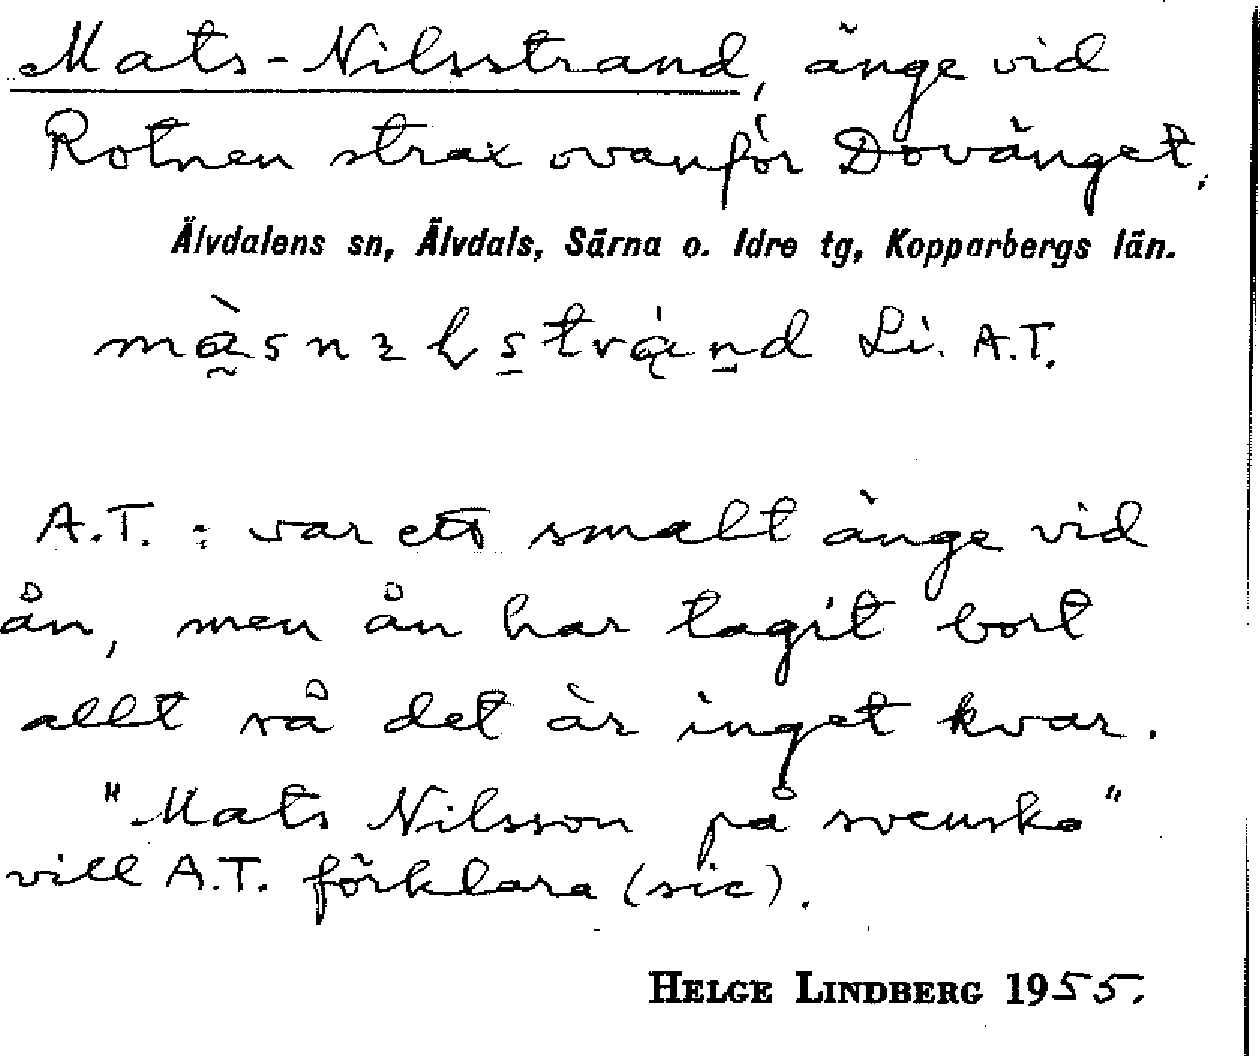 Mats-Nilsstrand, änge vid
Rotnen strax ovanför Dovänget.
Älvdalens sn, Älvdals, Särna o. Idre tg, Kopparbergs län.
Li. A.T.
A.T. : var ett smalt änge vid
ån, men ån har tagit bort
allt så det är inget kvar.
"Mats Nilsson på svenska"
vill A.T. förklara (sic).
HELGE LINDBERG 1955.